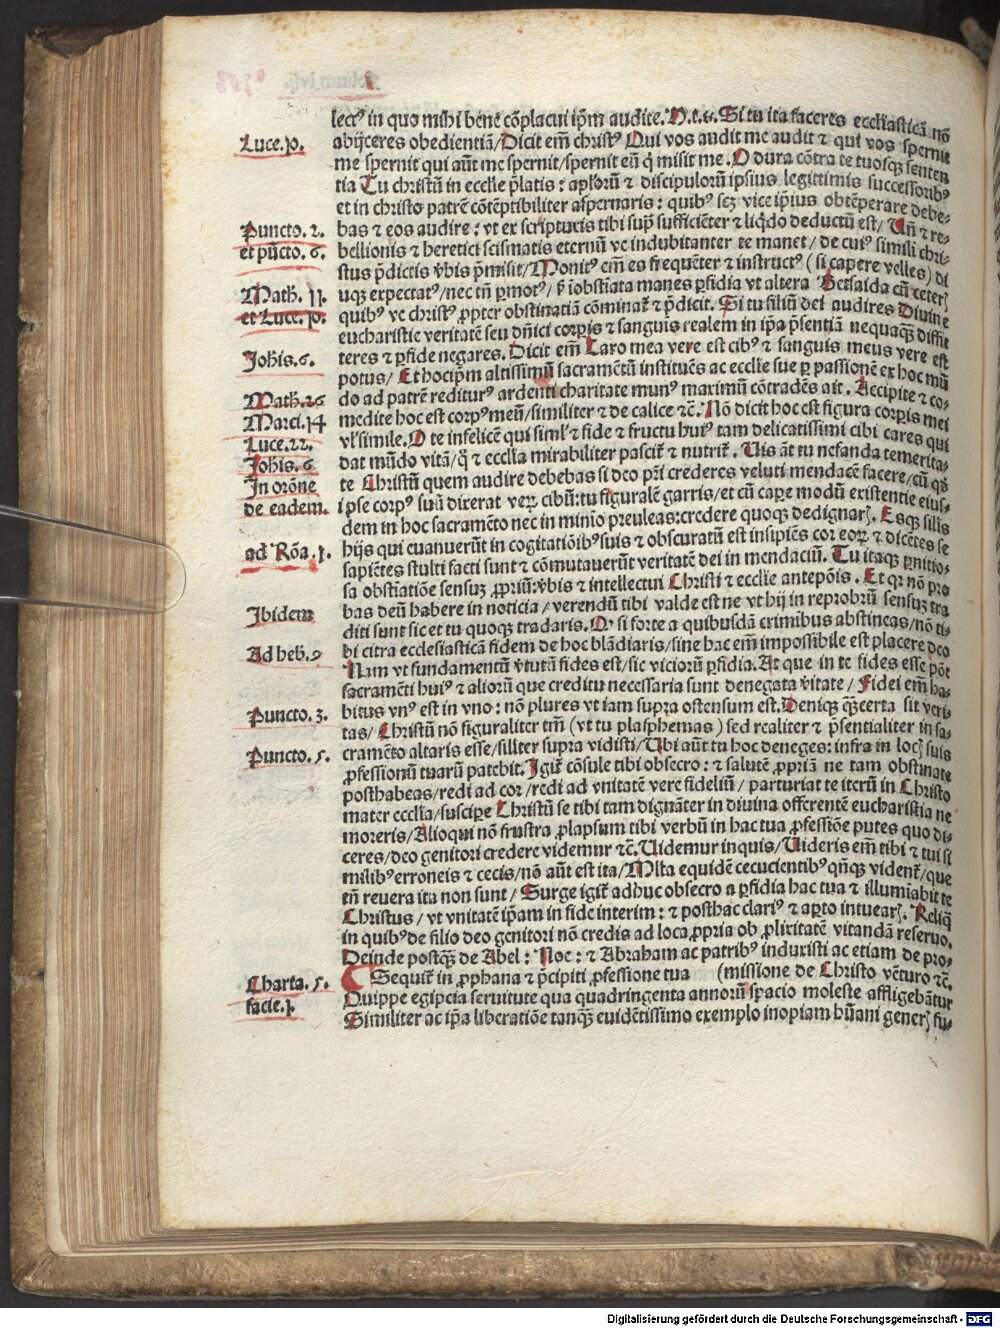 lectꝰ in quo mihi bene cōplacui ip̄m audite. N.t.s. Si tu ita faceres ecclīasticā nō
Luce.p.
abijceres obedientiā/Dicit em̄ christꝰ Qui vos audit me audit ⁊ qui vos spernit
me spernit qui aūt me spernit/spernit eū q̄ misit me. O dura cōtra te tuosqꝫ senten
tia Tu christū in ecclīe p̄latis: apl̄orū ⁊ discipulorū ipsius legittimis successoribꝰ
et in christo patrē cōtēptibiliter aspernaris: quibꝰ scꝫ vice ip̄ius obtēperare debe⸗
Puncto.2.
bas ⁊ eos audire: vt ex scripturis tibi sup̄ sufficiēter ⁊ liq̄do deductū est/ Un̄ ⁊ re⸗
et pūcto.6.
bellionis ⁊ heretici scismatis eternū ve indubitanter te manet/ de cuiꝰ simili chri⸗
stus p̄dictis v̄bis p̄misit/ Monitꝰ em̄ es frequēter ⁊ instructꝰ (si capere velles) di
Math.11.
uqꝫ expectatꝰ/nec tn̄ p̄motꝰ/ s̄ iobstiata manes p̄fidia vt altera Betsaida cū ceterꝭ
et Luce.p.
quibꝰ ve christꝰ ꝓpter obstinatiā cōminat᷑ ⁊ p̄dicit. Si tu filiū dei audires Diuine
eucharistie veritatē seu dn̄ici corꝑis ⁊ sanguis realem in ip̄a p̄sentiā nequaqꝫ diffit
Johis.6.
teres ⁊ ꝑfide negares. Dicit em̄ Caro mea vere est cibꝰ ⁊ sanguis meus vere est
potus/ Et hocip̄m altissimū sacramētū instituēs ac ecclīe sue ꝑ passionē ex hoc mū
Math.26
do ad patrē rediturꝰ ardenti charitate munꝰ maximū cōtradēs ait. Accipite ⁊ co⸗
Marci.14
medite hoc est corpꝰ meū/similiter ⁊ de calice ⁊c̄. Nō dicit hoc est figura corꝑis mei
Luce.22.
vl̄ simile. O te infelicē qui siml̄ ⁊ fide ⁊ fructu huiꝰ tam delicatissimi cibi cares qui
Johis.6
dat mūdo vitā/q̄ ⁊ ecclīa mirabiliter pascit᷑ ⁊ nutrit᷑. Uis āt tu nefanda temerita⸗
In orōne
te Christū quem audire debebas si deo pr̄i crederes veluti mendacē facere/cū q̄s
de eadem.
ipse corpꝰ suū dixerat verꝫ cibū: tu figuralē garris/et cū caꝑe modū existentie eius⸗
dem in hoc sacramēto nec in minīo preuleas: credere quoqꝫ dedignarꝭ. Esqꝫ silis
ad Rōa.1.
hijs qui euanuerūt in cogitatiōibꝰ suis ⁊ obscuratū est insipiēs cor eoꝝ ⁊ dicētes se
sapiētes stulti facti sunt ⁊ cōmutauerūt veritatē dei in mendaciū. Tu itaqꝫ ꝑnitio⸗
sa obstiatiōe sensuꝫ ꝓpriū: v̄bis ⁊ intellectui Christi ⁊ ecclīe antepōis. Et qꝛ nō pro
Ibidem
bas deū habere in noticia/ verendū tibi valde est ne vt hij in reprobrū sensuꝫ tra
diti sunt sic et tu quoqꝫ tradaris. Qꝰ si forte a quibusdā crimibus abstineas/nō ti⸗
Ad heb.9
bi citra ecclesiasticā fidem de hoc blādiaris/sine hac em̄ impossibile est placere deo
Nam vt fundamentū v̄tutū fides est/sic viciorū ꝑfidia. At que in te fides esse pōt
sacramēti huiꝰ ⁊ aliorū que creditu necessaria sunt denegata v̄itate/ Fidei em̄ ha⸗
Puncto.3.
bitus vnꝰ est in vno: nō plures vt iam supra ostensum est. Deniqꝫ q̄ꝫcerta sit veri⸗
tas/ Christū nō figuraliter tm̄ (vt tu plasphemas) sed realiter ⁊ p̄sentialiter in sa⸗
Puncto.5.
cramēto altaris esse/siliter supra vidisti/Ubi aūt tu hoc deneges: infra in locꝭ suis
ꝓfessionū tuarū patebit. Igit᷑ cōsule tibi obsecro: ⁊ salutē ꝓpriā ne tam obstinate
posthabeas/redi ad cor/redi ad vnitatē vere fideliū/ parturiat te iterū in Christo
mater ecclīa/suscipe Christū se tibi tam dignāter in diuina offerentē eucharistia ne
moreris/Alioqui nō frustra ꝓlapsum tibi verbū in hac tua ꝓfessiōe putes quo di⸗
ceres/deo genitori credere videmur ⁊c̄. Uidemur inquis/Uideris em̄ tibi ⁊ tui si
milibꝰ erroneis ⁊ cecis/nō aūt est ita/Mlta equidē cecucientibꝰ qn̄qꝫ vident᷑/que
tn̄ reuera ita non sunt/ Surge igit᷑ adhuc obsecro a ꝑfidia hac tua ⁊ illumiabit te
Christus/ vt vnitatē ip̄am in fide interim: ⁊ posthac clariꝰ ⁊ aꝑto intuearꝭ. Reliq̄
in quibꝰ de filio deo genitori nō credis ad loca ꝓpria ob ꝓlixitatē vitandā reseruo.
Deinde postqꝫ de Abel: Noe: ⁊ Abraham ac patribꝰ induxisti ac etiam de pro⸗
Charta.5.
Sequit᷑ in ꝓphana ⁊ p̄cipiti ꝓfessione tua (missione de Christo vēturo ⁊c̄.
facie.1.
Quippe egipcia seruitute qua quadringenta annorū spacio moleste affligebātur
Similiter ac ip̄a liberatiōe tanqꝫ euidētissimo exemplo inopiam hūani generꝭ fu⸗
Digitalisierung gefördert durch die Deutsche Forschungsgemeinschaft - DFG